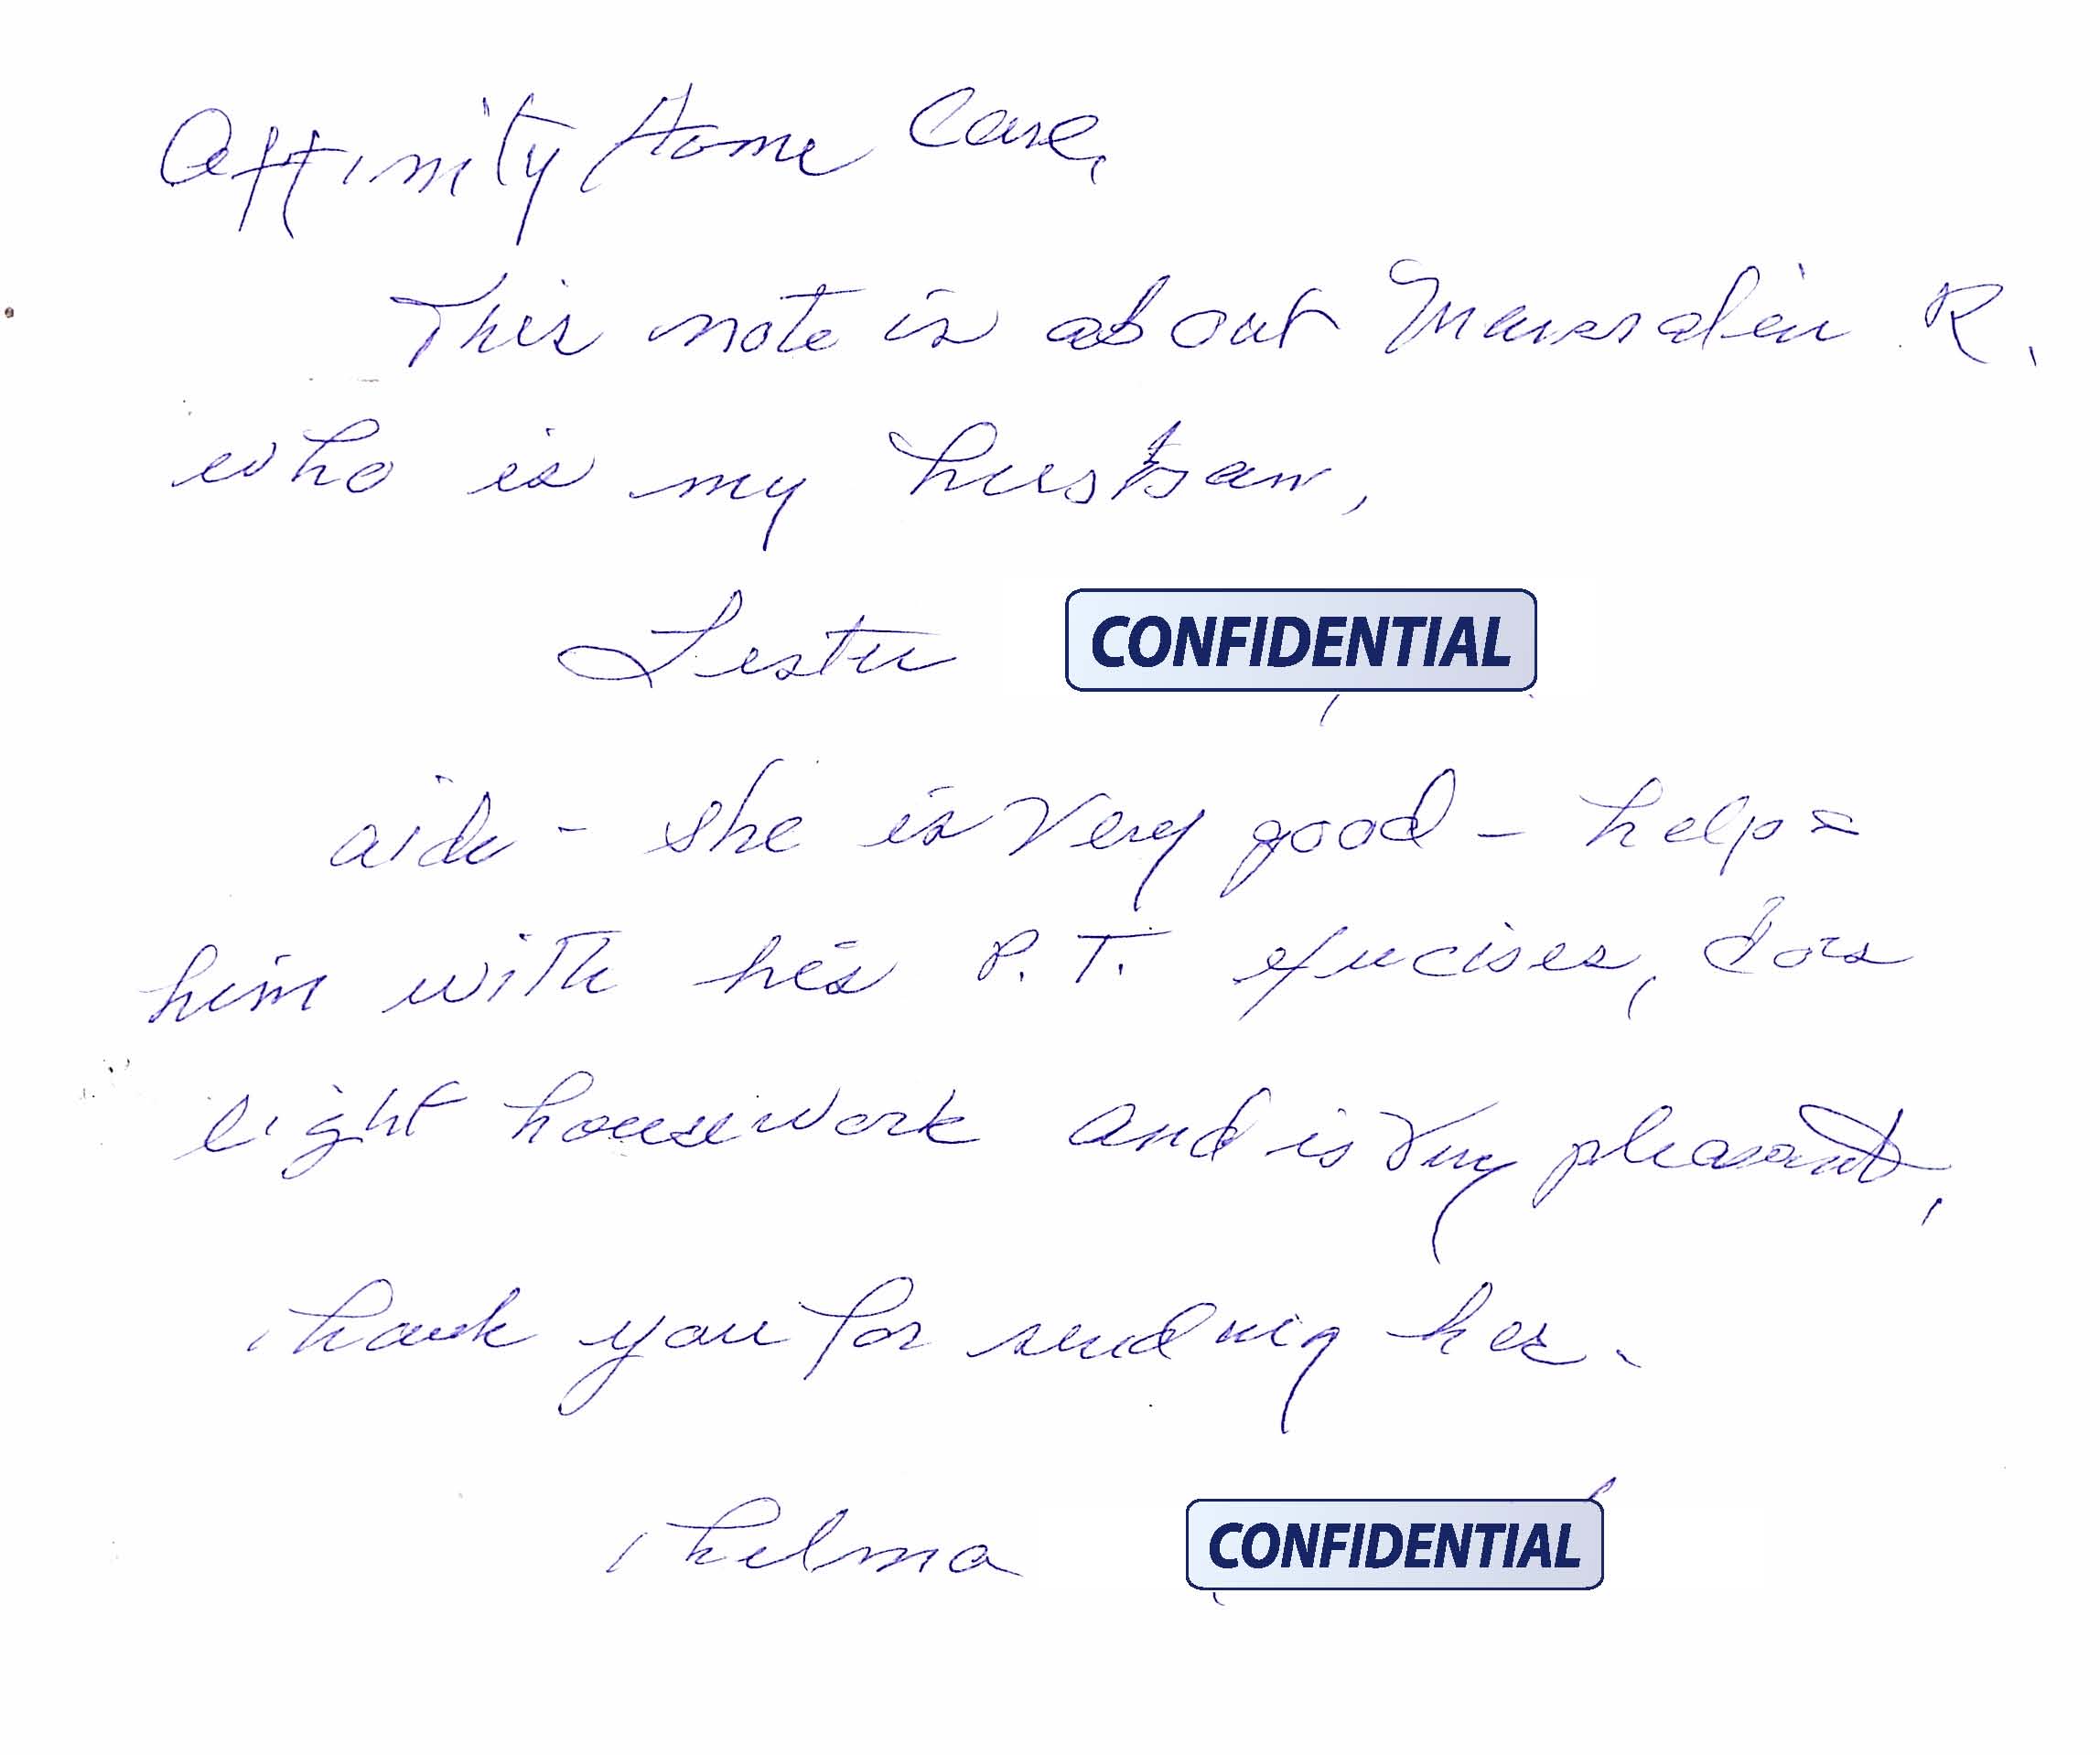 Affinity Home Care,
This note is about R.
who is my husban,
Lester CONFIDENTIAL
aide - she is very good - helps
him with his P.T. exercises, does
light housework and is very pleasant,
Thank you for sending her.
Thelma CONFIDENTIAL